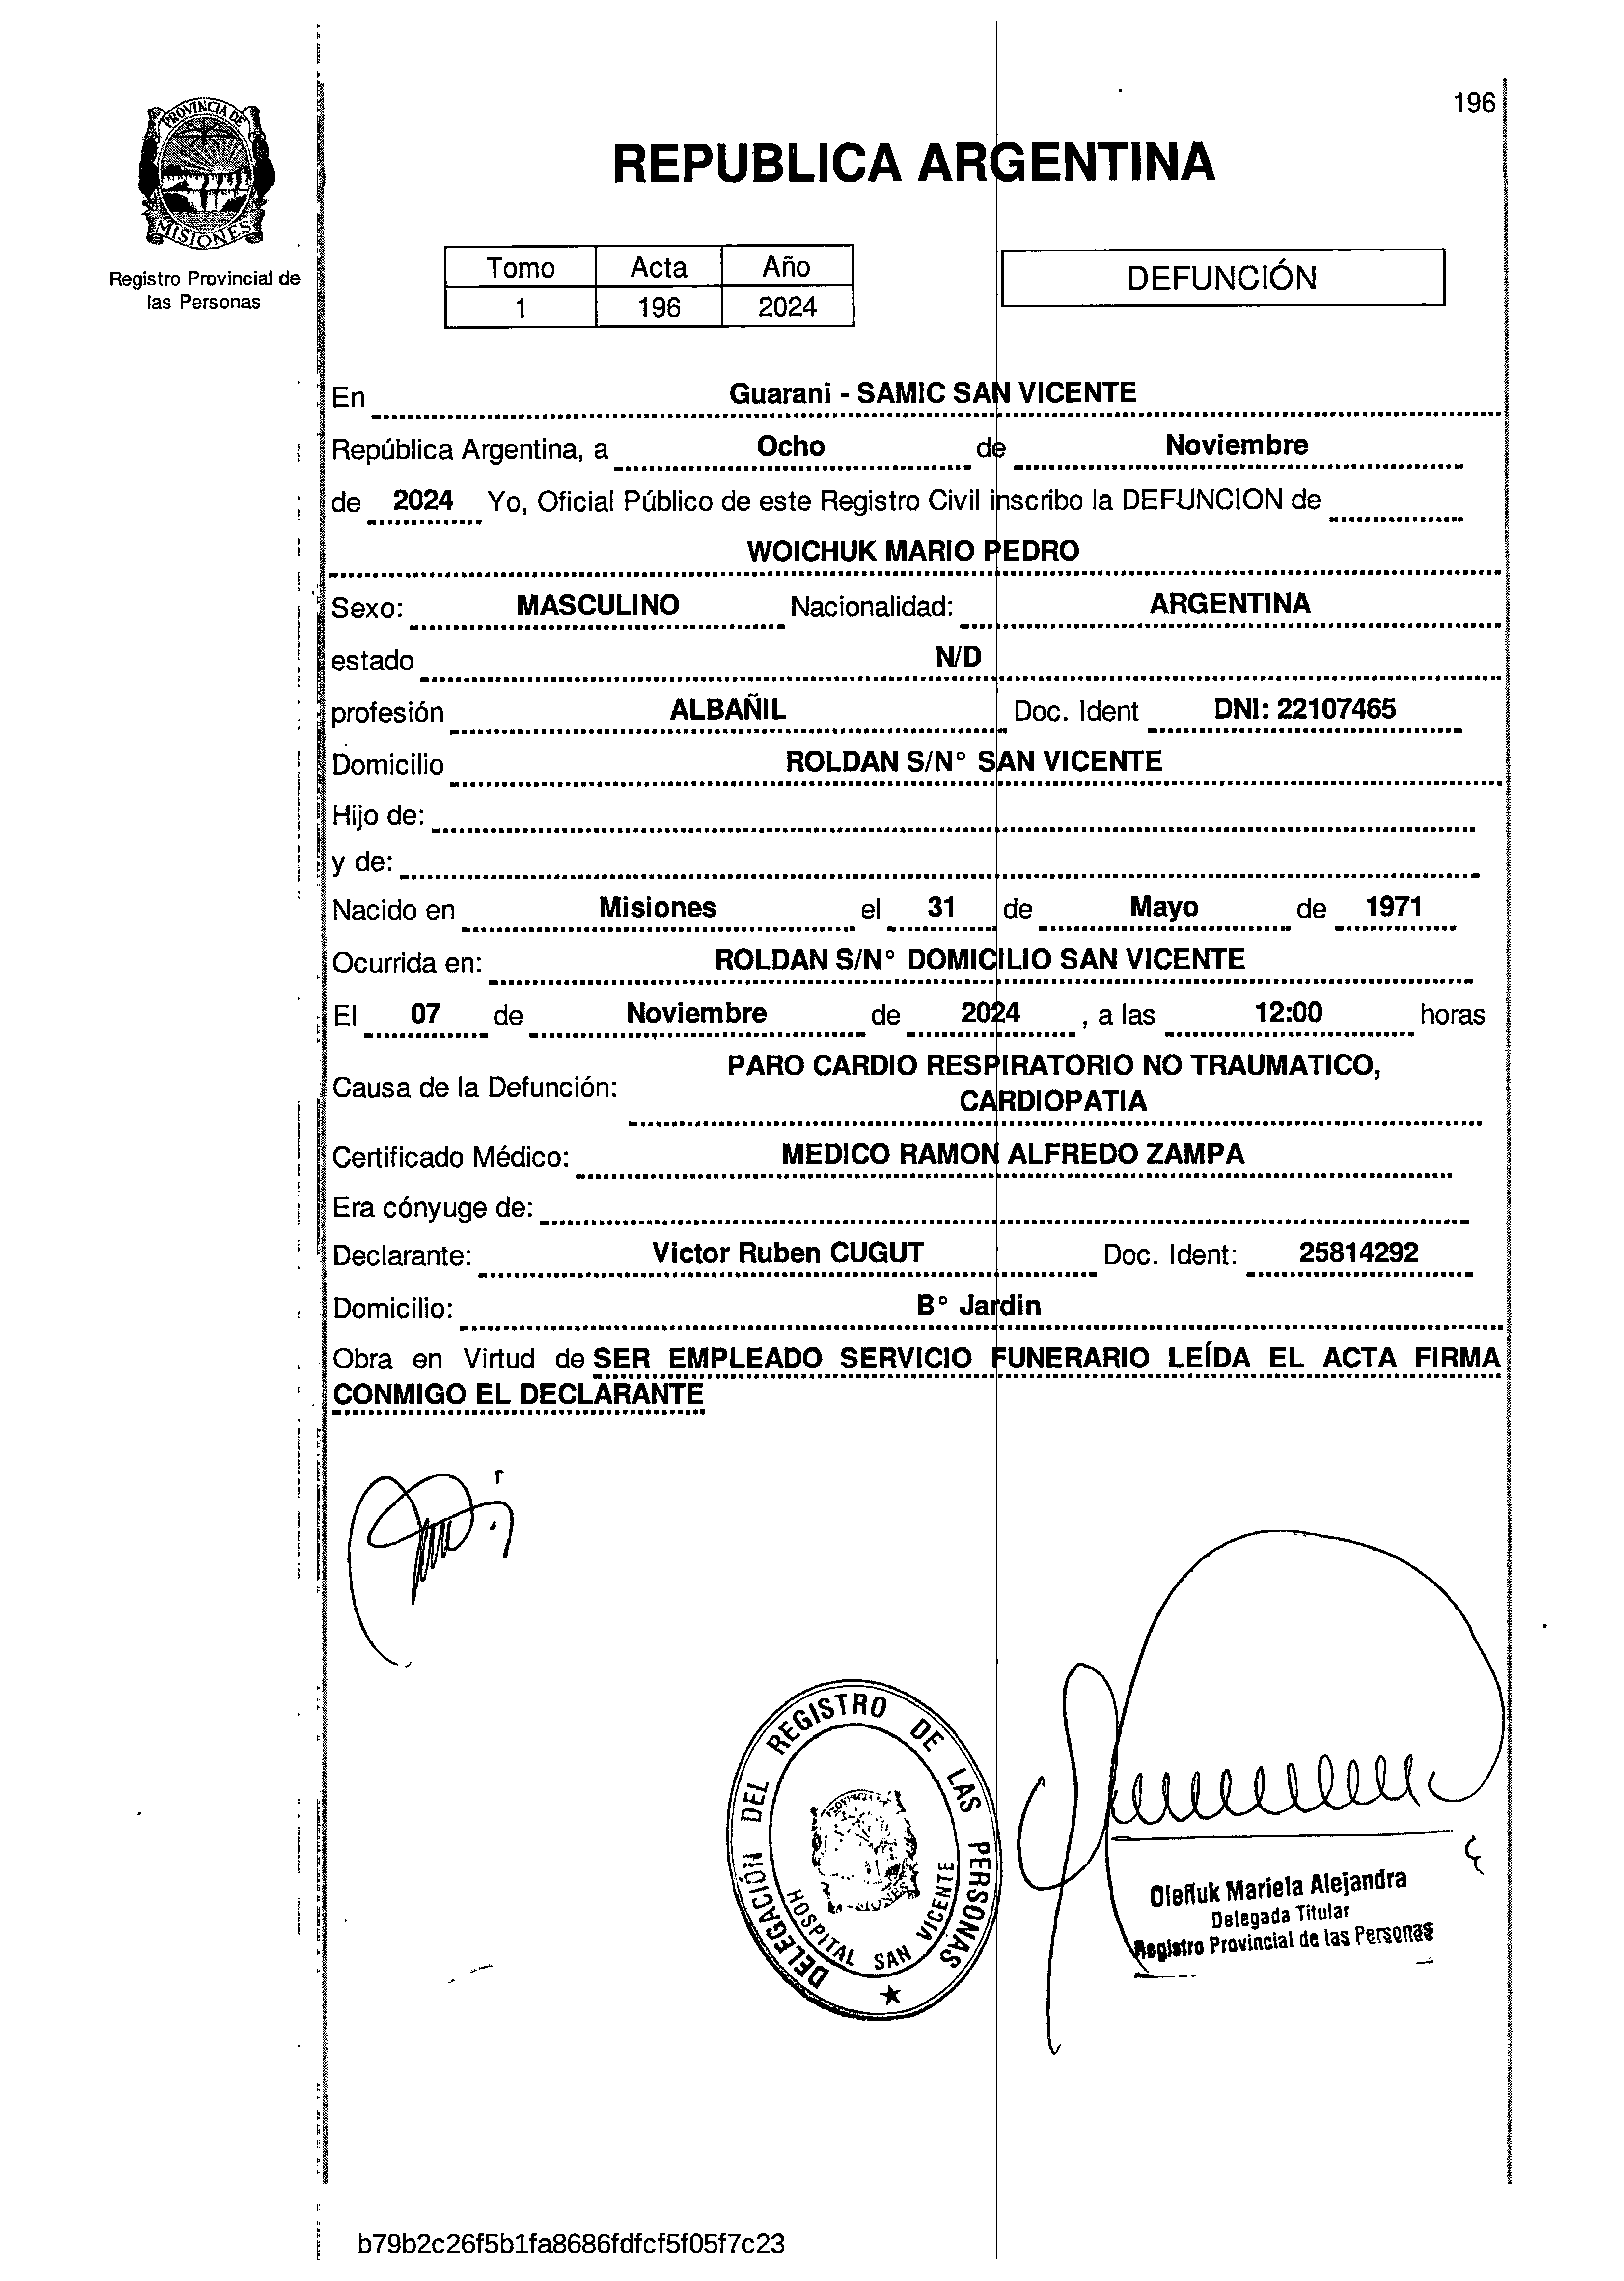 196
PROVINCIA DE
MISIONES
Registro Provincial de
las Personas
REPUBLICA ARGENTINA
Tomo Acta Año
1 196 2024
DEFUNCIÓN
En Guarani - SAMIC SAN VICENTE
República Argentina, a Ocho de Noviembre
de 2024 Yo, Oficial Público de este Registro Civil inscribo la DEFUNCION de
WOICHUK MARIO PEDRO
Sexo: MASCULINO Nacionalidad: ARGENTINA
estado N/D
profesión ALBAÑIL Doc. Ident DNI: 22107465
Domicilio ROLDAN S/N° SAN VICENTE
Hijo de:
y de:
Nacido en Misiones el 31 de Mayo de 1971
Ocurrida en: ROLDAN S/N° DOMICILIO SAN VICENTE
El 07 de Noviembre de 2024 , a las 12:00 horas
Causa de la Defunción: PARO CARDIO RESPIRATORIO NO TRAUMATICO,
CARDIOPATIA
Certificado Médico: MEDICO RAMON ALFREDO ZAMPA
Era cónyuge de:
Declarante: Victor Ruben CUGUT Doc. Ident: 25814292
Domicilio: B° Jardin
Obra en Virtud de SER EMPLEADO SERVICIO FUNERARIO LEÍDA EL ACTA FIRMA
CONMIGO EL DECLARANTE
DELEGACIÓN DEL REGISTRO DE LAS PERSONAS
PROVINCIA DE
MISIONES
HOSPITAL SAN VICENTE
Oleñuk Mariela Alejandra
Delegada Titular
Registro Provincial de las Personas
b79b2c26f5b1fa8686fdfcf5f05f7c23